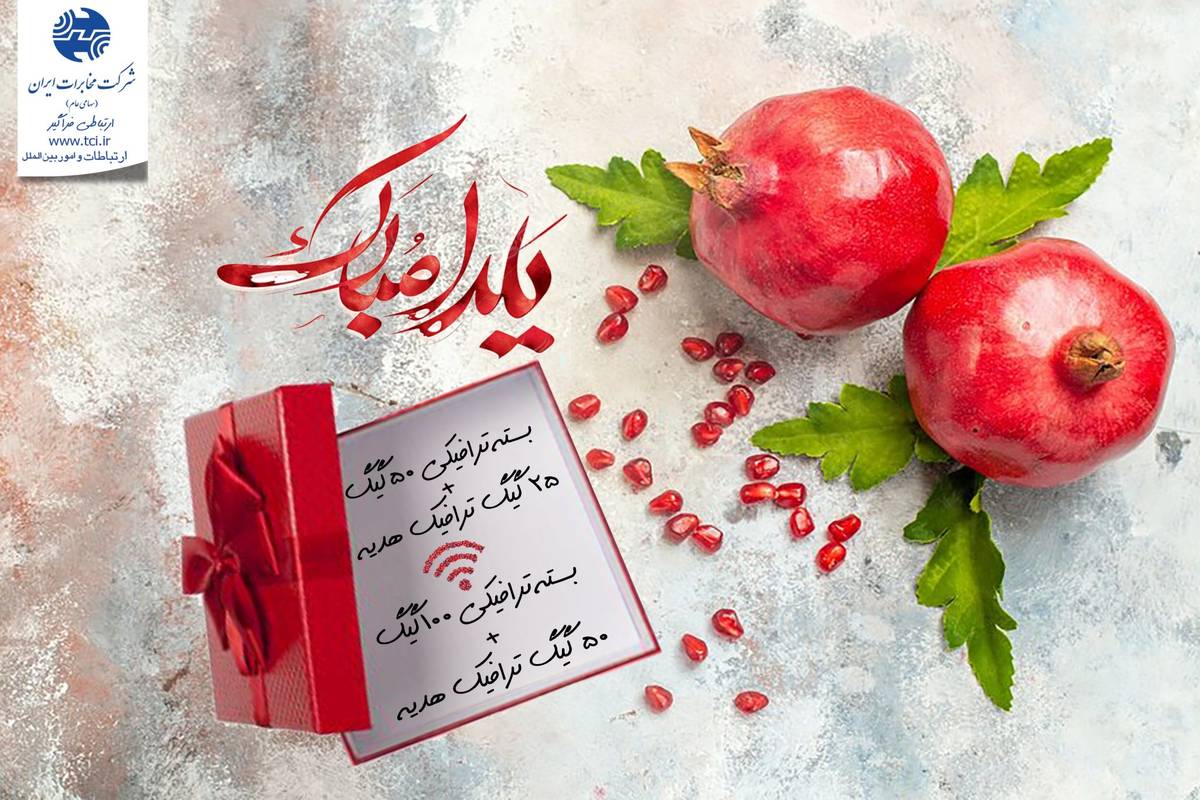 شرکت مخابرات ایران
(سهامی عام)
ارتباطی فراگیر
www.tci.ir
ارتباطات و امور بین‌الملل
یلدا مُبارک
بسته ترافیکی ۵۰ گیگ
+
۲۵ گیگ ترافیک هدیه
بسته ترافیکی ۱۰۰ گیگ
+
۵۰ گیگ ترافیک هدیه